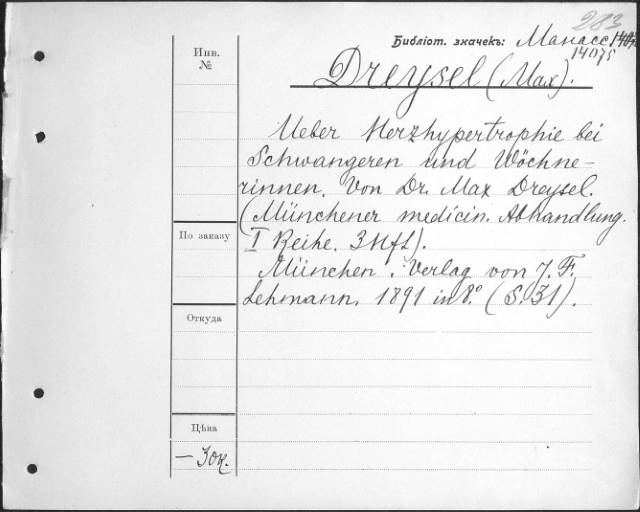 283
Библіот. значекъ: Манасс
14075
Инв.
№
Dreysel (Max).
Ueber Herzhypertrophie bei
Schwangeren und Wöchne-
rinnen. Von Dr. Max Dreysel.
(Münchener medicin. Abhandlung.
I Reihe. 3 Hft).
München. Verlag von J. F.
Lehmann. 1891 in 8.° (S. 31).
По заказу
Откуда
Цѣна
— 30к.